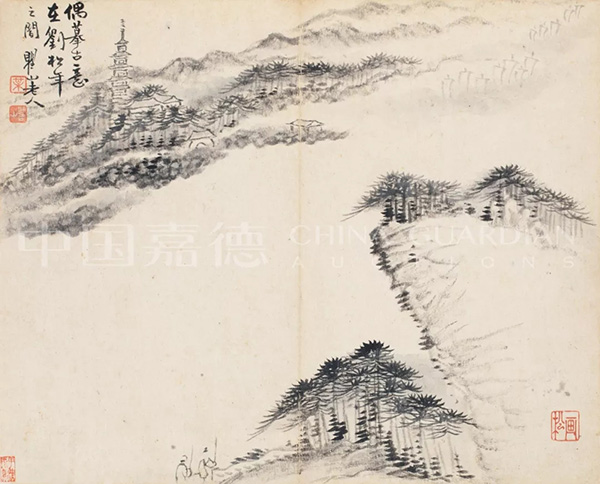 偶摹古意
在劉松年
之間 瞿山老人
画松
中国嘉德 CHINA GUARDIAN
AUCTIONS